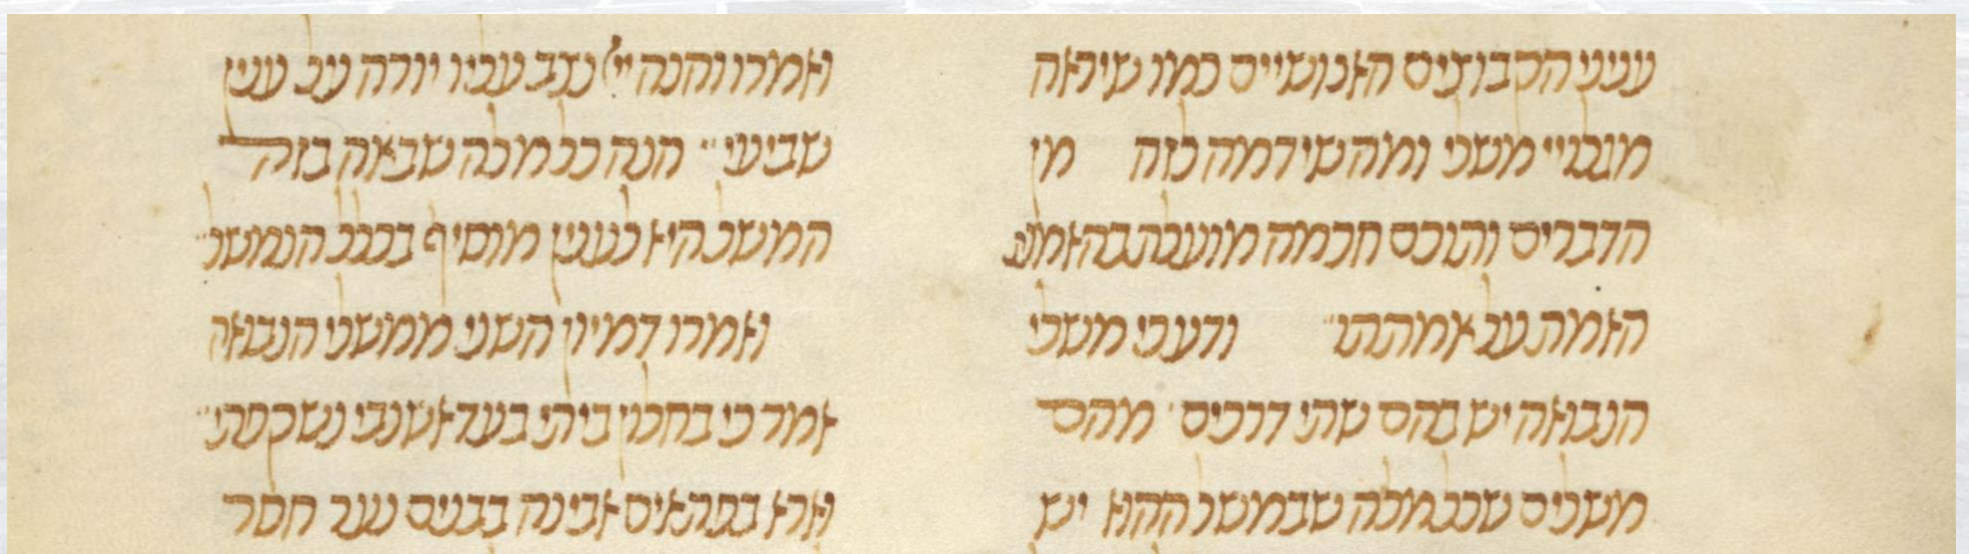 עניני הקבוצים האנושיים כמו שיראה
מגלויי משלי ומה שידמה לזה מן
הדברים ותוכם חכמה מועלת בהאמנת
האמת על אמתתו ודע כי משלי
הנבואה יש בהם שתי דרכים מהם
משלים שכל מלה שבמשל ההוא יש
ואמרו והנה יי' נצב עליו יורה על ענין
שביעי הנה כל מלה שבאה בזה
המשל היא לענין מוסיף בכלל הנמשל
ואמרו דמיון השני ממשלי הנבואה
אמר כי בחלון ביתי בעד אשנבי נשקפתי
וארא בפתאים אבינה בבנים נער חסר